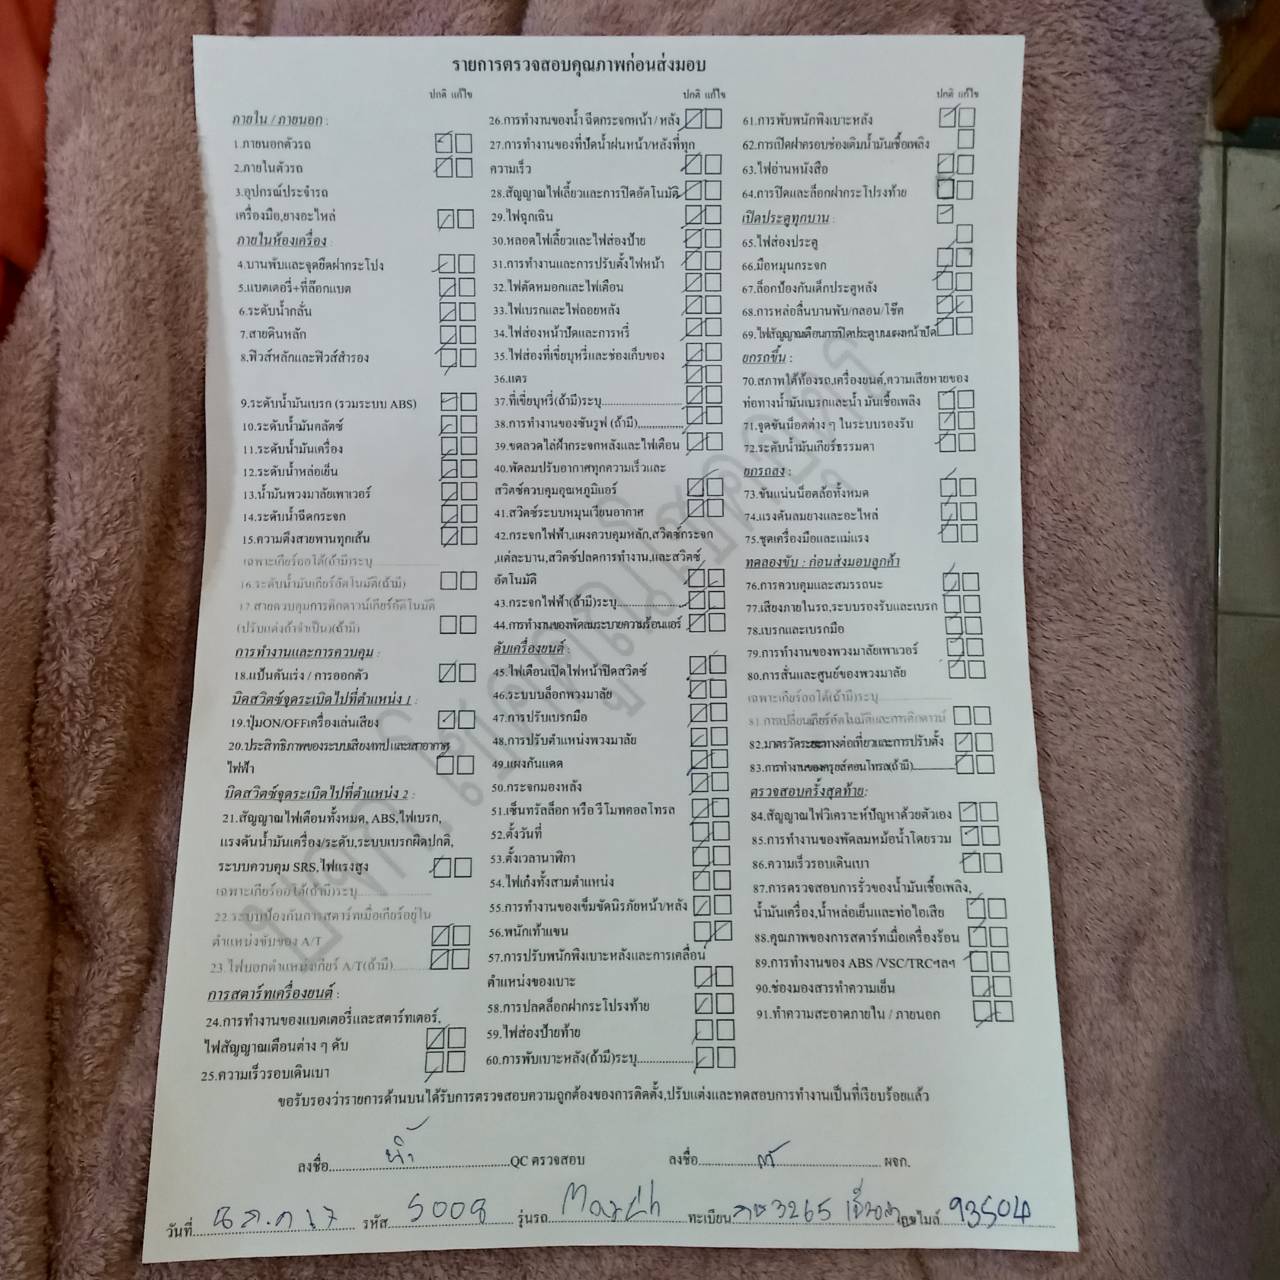 รายการตรวจสอบคุณภาพก่อนส่งมอบ
ปกติ แก้ไข
ภายใน / ภายนอก :
1.ภายนอกตัวรถ
2.ภายในตัวรถ
3.อุปกรณ์ประจำรถ
เครื่องมือ,ยางอะไหล่
ภายในห้องเครื่อง :
4.บานพับและจุดยึดฝากระโปง
5.แบตเตอรี่+ที่ล๊อกแบต
6.ระดับน้ำกลั่น
7.สายดินหลัก
8.ฟิวส์หลักและฟิวส์สำรอง
9.ระดับน้ำมันเบรก (รวมระบบ ABS)
10.ระดับน้ำมันคลัตซ์
11.ระดับน้ำมันเครื่อง
12.ระดับน้ำหล่อเย็น
13.น้ำมันพวงมาลัยเพาเวอร์
14.ระดับน้ำฉีดกระจก
15.ความตึงสายพานทุกเส้น
เฉพาะเกียร์ออโต้(ถ้ามี)ระบุ
16.ระดับน้ำมันเกียร์อัตโนมัติ(ถ้ามี)
17.สายควบคุมการคิกดาวน์เกียร์อัตโนมัติ
(ปรับแต่งถ้าจำเป็น)(ถ้ามี)
การทำงานและการควบคุม :
18.แป้นคันเร่ง / การออกตัว
บิดสวิตซ์จุดระเบิดไปที่ตำแหน่ง 1 :
19.ปุ่มON/OFFเครื่องเล่นเสียง
20.ประสิทธิภาพของระบบเสียงเทปและเสาอากาศ
ไฟฟ้า
บิดสวิตซ์จุดระเบิดไปที่ตำแหน่ง 2 :
21.สัญญาณไฟเตือนทั้งหมด, ABS,ไฟเบรก,
แรงดันน้ำมันเครื่อง/ระดับ,ระบบเบรกผิดปกติ,
ระบบควบคุม SRS,ไฟแรงสูง
เฉพาะเกียร์ออโต้(ถ้ามี)ระบุ
22.ระบบป้องกันการสตาร์ทเมื่อเกียร์อยู่ใน
ตำแหน่งขับของ A/T
23.ไฟบอกตำแหน่งเกียร์ A/T(ถ้ามี)
การสตาร์ทเครื่องยนต์ :
24.การทำงานของแบตเตอรี่และสตาร์ทเตอร์,
ไฟสัญญาณเตือนต่าง ๆ ดับ
25.ความเร็วรอบเดินเบา
ปกติ แก้ไข
26.การทำงานของน้ำ ฉีดกระจกหน้า / หลัง
27.การทำงานของที่ปัดน้ำฝนหน้า/หลังที่ทุก
ความเร็ว
28.สัญญาณไฟเลี้ยวและการปิดอัตโนมัติ
29.ไฟฉุกเฉิน
30.หลอดไฟเลี้ยวและไฟส่องป้าย
31.การทำงานและการปรับตั้งไฟหน้า
32.ไฟตัดหมอกและไฟเตือน
33.ไฟเบรกและไฟถอยหลัง
34.ไฟส่องหน้าปัดและการหรี่
35.ไฟส่องที่เขี่ยบุหรี่และช่องเก็บของ
36.แตร
37.ที่เขี่ยบุหรี่(ถ้ามี)ระบุ
38.การทำงานของซันรูฟ (ถ้ามี)
39.ขดลวดไล่ฝ้ากระจกหลังและไฟเตือน
40.พัดลมปรับอากาศทุกความเร็วและ
สวิตซ์ควบคุมอุณหภูมิแอร์
41.สวิตซ์ระบบหมุนเวียนอากาศ
42.กระจกไฟฟ้า,แผงควบคุมหลัก,สวิตซ์กระจก
,แต่ละบาน,สวิตซ์ปลดการทำงาน,และสวิตซ์
อัตโนมัติ
43.กระจกไฟฟ้า(ถ้ามี)ระบุ
44.การทำงานของพัดลมระบายความร้อนแอร์
ดับเครื่องยนต์ :
45.ไฟเตือนเปิดไฟหน้าปิดสวิตซ์
46.ระบบบล็อกพวงมาลัย
47.การปรับเบรกมือ
48.การปรับตำแหน่งพวงมาลัย
49.แผงกันแดด
50.กระจกมองหลัง
51.เซ็นทรัลล็อก หรือ รีโมทคอลโทรล
52.ตั้งวันที่
53.ตั้งเวลานาฬิกา
54.ไฟเก๋งทั้งสามตำแหน่ง
55.การทำงานของเข็มขัดนิรภัยหน้า/หลัง
56.พนักเท้าแขน
57.การปรับพนักพิงเบาะหลังและการเคลื่อน
ตำแหน่งของเบาะ
58.การปลดล็อกฝากระโปรงท้าย
59.ไฟส่องป้ายท้าย
60.การพับเบาะหลัง(ถ้ามี)ระบุ
ปกติ แก้ไข
61.การพับพนักพิงเบาะหลัง
62.การเปิดฝาครอบช่องเติมน้ำมันเชื้อเพลิง
63.ไฟอ่านหนังสือ
64.การปิดและล็อกฝากระโปรงท้าย
เปิดประตูทุกบาน :
65.ไฟส่องประตู
66.มือหมุนกระจก
67.ล็อกป้องกันเด็กประตูหลัง
68.การหล่อลื่นบานพับ/กลอน/โช๊ค
69.ไฟสัญญาณเตือนการปิดประตูบนแผงหน้าปัด
ยกรถขึ้น :
70.สภาพใต้ท้องรถ,เครื่องยนต์,ความเสียหายของ
ท่อทางน้ำมันเบรกและน้ำ มันเชื้อเพลิง
71.จุดขันน็อตต่าง ๆ ในระบบรองรับ
72.ระดับน้ำมันเกียร์ธรรมดา
ยกรถลง :
73.ขันแน่นน็อตล้อทั้งหมด
74.แรงดันลมยางและอะไหล่
75.ชุดเครื่องมือและแม่แรง
ทดลองขับ : ก่อนส่งมอบลูกค้า
76.การควบคุมและสมรรถนะ
77.เสียงภายในรถ,ระบบรองรับและเบรก
78.เบรกและเบรกมือ
79.การทำงานของพวงมาลัยเพาเวอร์
80.การสั่นและศูนย์ของพวงมาลัย
เฉพาะเกียร์ออโต้(ถ้ามี)ระบุ
81.การเปลี่ยนเกียร์อัตโนมัติและการคิกดาวน์
82.มาตรวัดระยะทางต่อเที่ยวและการปรับตั้ง
83.การทำงานของครุยส์คอนโทรล(ถ้ามี)
ตรวจสอบครั้งสุดท้าย:
84.สัญญาณไฟวิเคราะห์ปัญหาด้วยตัวเอง
85.การทำงานของพัดลมหม้อน้ำโดยรวม
86.ความเร็วรอบเดินเบา
87.การตรวจสอบการรั่วของน้ำมันเชื้อเพลิง,
น้ำมันเครื่อง,น้ำหล่อเย็นและท่อไอเสีย
88.คุณภาพของการสตาร์ทเมื่อเครื่องร้อน
89.การทำงานของ ABS /VSC/TRCฯลฯ
90.ช่องมองสารทำความเย็น
91.ทำความสะอาดภายใน / ภายนอก
ขอรับรองว่ารายการด้านบนได้รับการตรวจสอบความถูกต้องของการติดตั้ง,ปรับแต่งและทดสอบการทำงานเป็นที่เรียบร้อยแล้ว
ลงชื่อ QC ตรวจสอบ ลงชื่อ ผจก.
วันที่ รหัส 5008 รุ่นรถ March ทะเบียน 3265 เลขไมล์ 93504